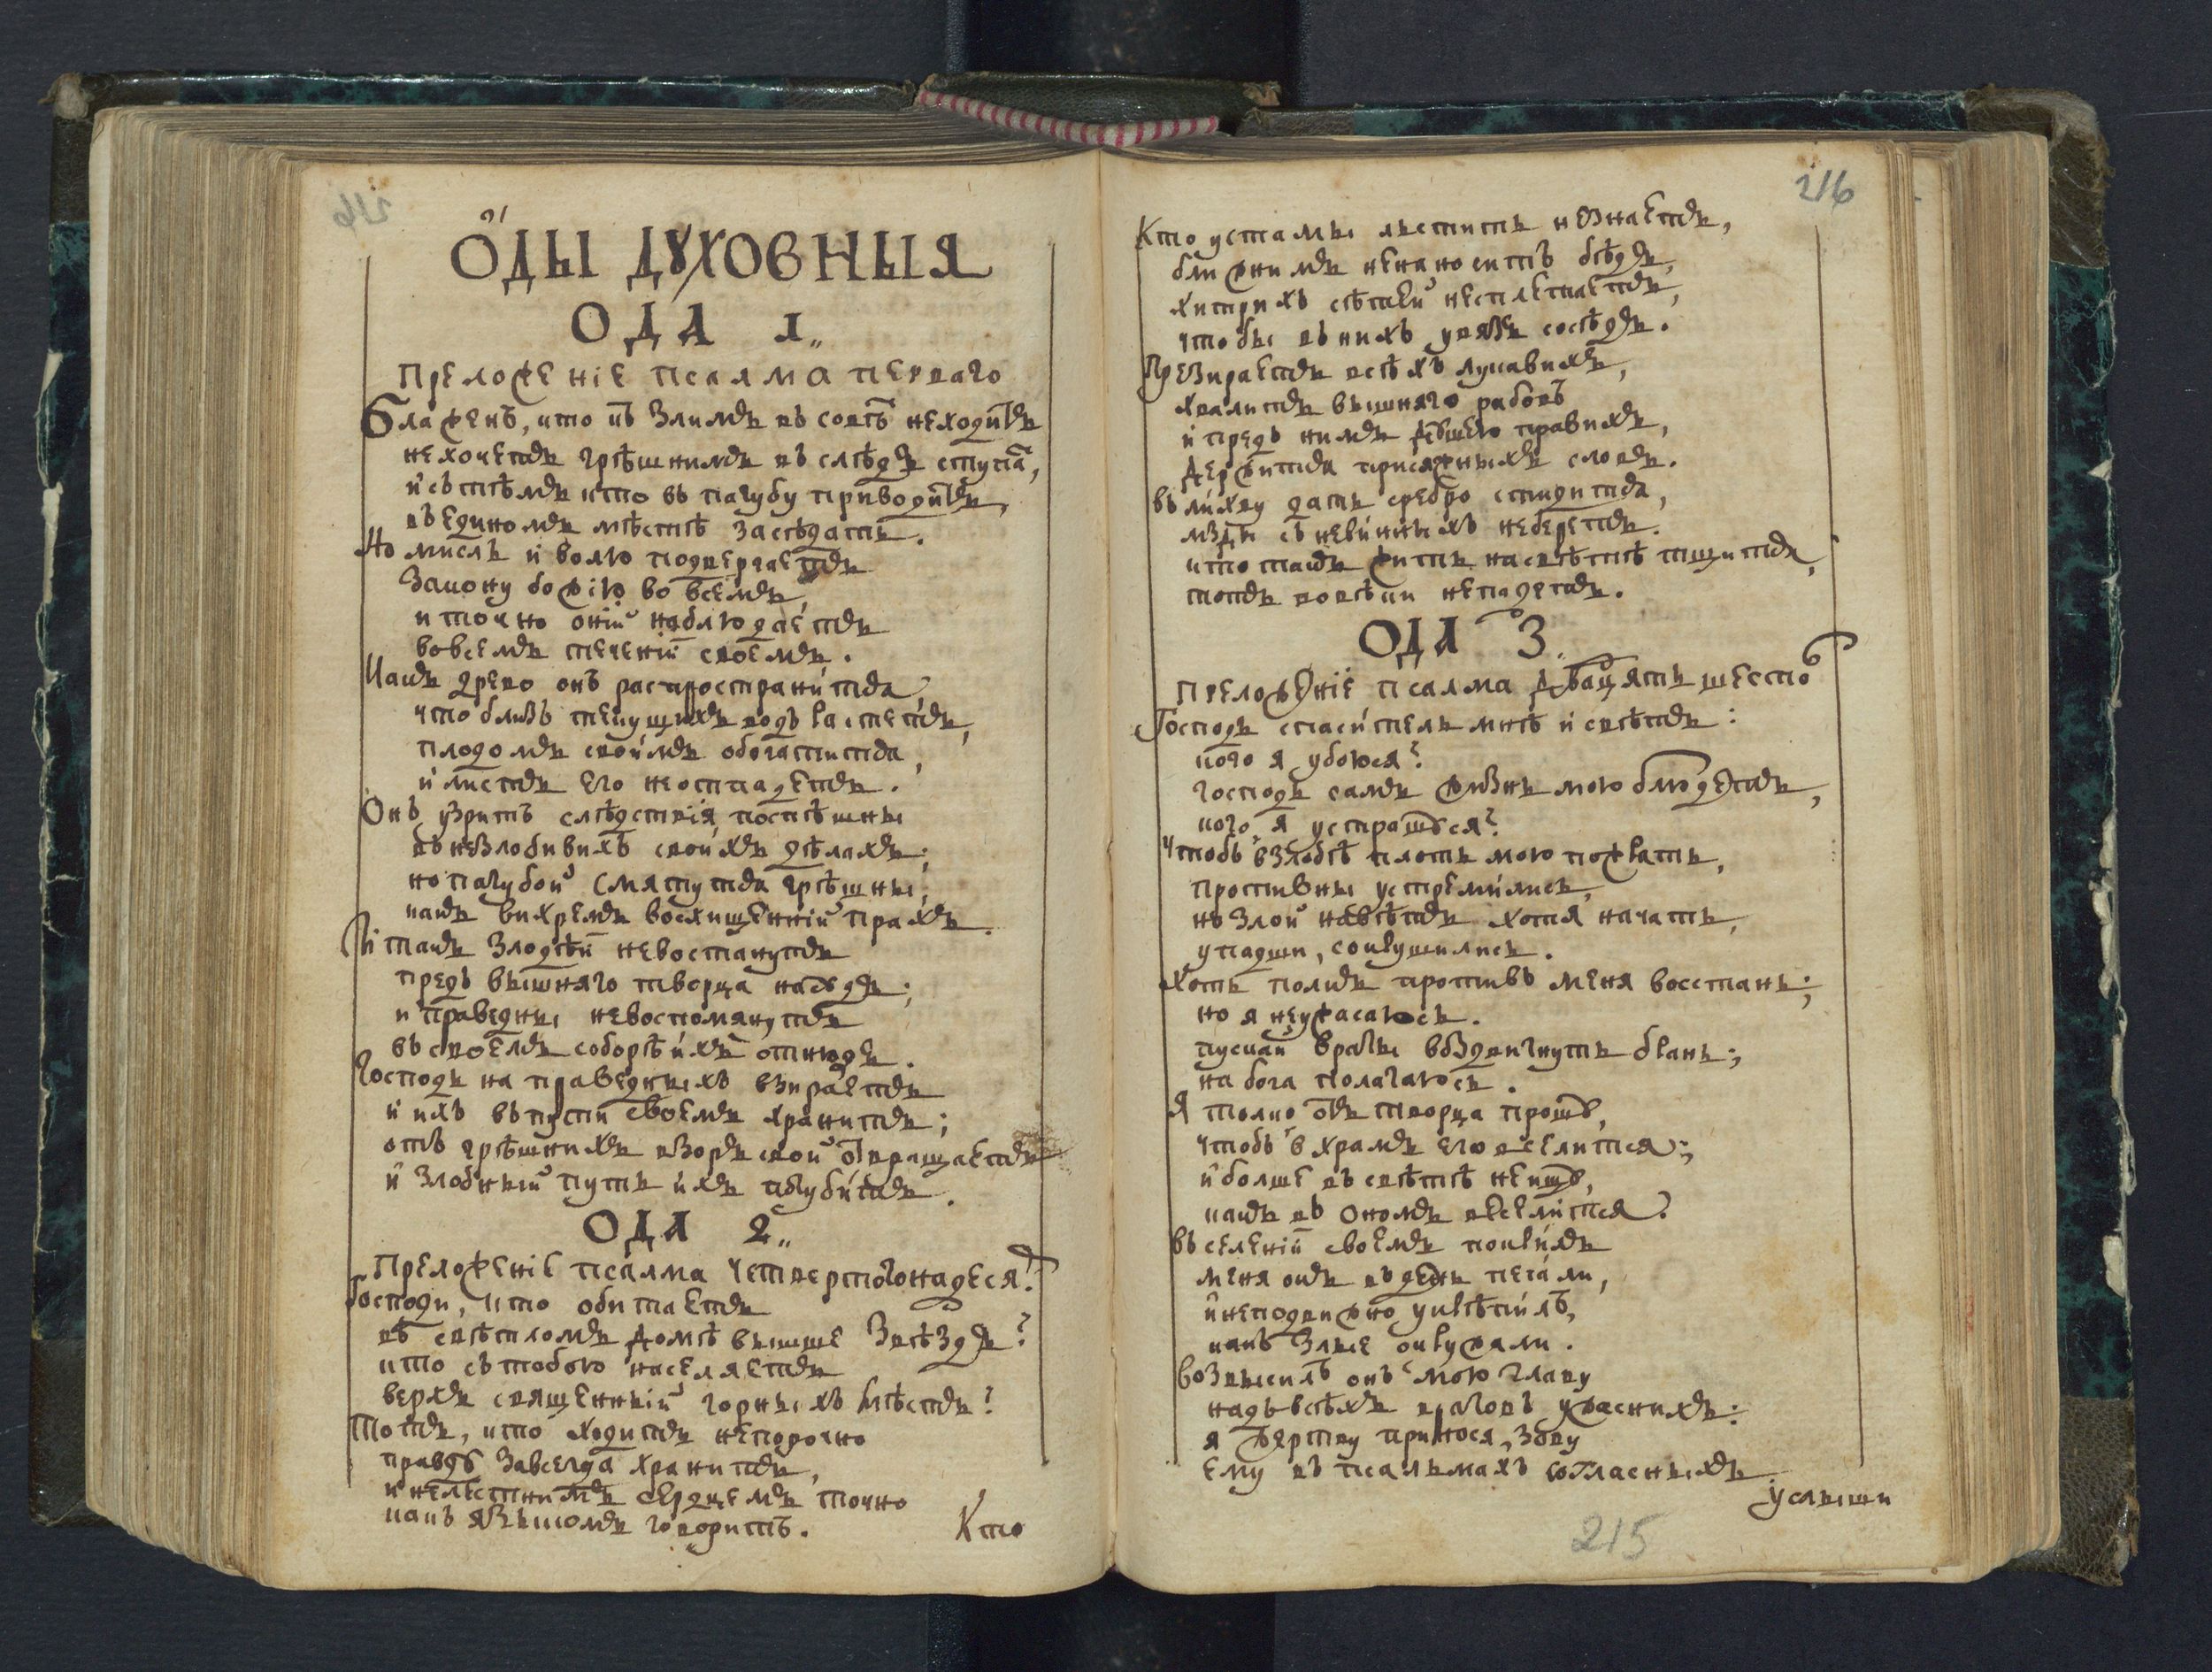 ОДЫ ДУХОВНЫЯ
ОДА 1
Преложеніе псалма перваго
Блаженъ, кто къ злымъ въ совѣтъ неходитъ
нехочетъ грѣшнимъ въ слѣдъ ступа,
и съ тѣмъ кто въ пагубу приводитъ,
въ единомъ мѣстѣ засѣдать.
Но мисль и волю подвергаетъ
Закону божію во всемъ,
и точно оній наблюдаетъ
вовсемъ теченіи своемъ.
Какъ древо онъ распространится
что близъ текущихъ водъ растетъ,
плодомъ своимъ обогатится,
и листъ его неотпадетъ.
Онъ узритъ слѣдствія поспѣшны
въ незлобивихъ своихъ дѣлахъ;
но пагубой смятутся грѣшны,
какъ вихремъ восхищенній прахъ.
И такъ злодѣи невостанутъ
предъ вышняго творца на судъ;
и праведны невоспомянутъ
въ своемъ соборѣ ихъ отнюдь.
Господь на праведныхъ взираетъ
и ихъ въ пути своемъ хранитъ;
отъ грѣшнихъ взоръ свой отвращаетъ
и злобный путь ихъ погубитъ.
ОДА 2
Преложеніе псалма четвертогонадеся
Господи, кто обитаетъ
въ свѣтломъ домѣ вышше звѣздъ?
кто съ тобою населяетъ
верхъ священный горныхъ мѣстъ?
Тотъ, кто ходитъ непорочно
правду завсегда хранитъ,
и нелестнимъ сердцемъ точно
какъ язъкомъ говоритъ.
Кто
216
Кто устамы лстить незнаетъ,
ближнимъ ненаноситъ бѣдъ,
хитрихъ сѣтей несплетаетъ,
чтобы въ нихъ увязъ сосѣдъ.
Презираетъ всѣхъ лукавихъ,
хвалитъ вышняго рабовъ
и предъ нимъ душею правихъ,
держится присяжныхъ словъ.
Въ лихву дать сребро стидится,
мзды съ невинныхъ неберетъ.
кто такъ жить на свѣтѣ тщится,
тотъ вовѣки непадетъ.
ОДА 3
Преложеніе псалма двадцять шесто
Господь спаситель мнѣ и свѣтъ:
кого я убоюся?
господь самъ жизнь мою блюдетъ,
кого я устрашуся?
Чтобъ взлобѣ плоть мою пожрать,
противны устремились,
но злой навѣтъ хотя начать,
упадши, сокрушились.
Хоть полкъ противъ меня восстань;
но я неужасаюсь.
пускай враги воздвигнутъ брань;
на бога полагаюсь.
Я толко отъ творца прошу,
чтобъ в храмъ его вселится;
и болше въ свѣтѣ неищу,
какъ въ ономъ веселится.
въ селеніи своемъ покрилъ
меня онъ въ день печали,
и неподвижно укрѣпилъ,
какъ злые окружали.
возвысилъ онъ мою главу
надъ всѣхъ враговъ ужаснихъ:
я жертву принося, зову
ему въ псальмахъ согласныхъ
услыши
215